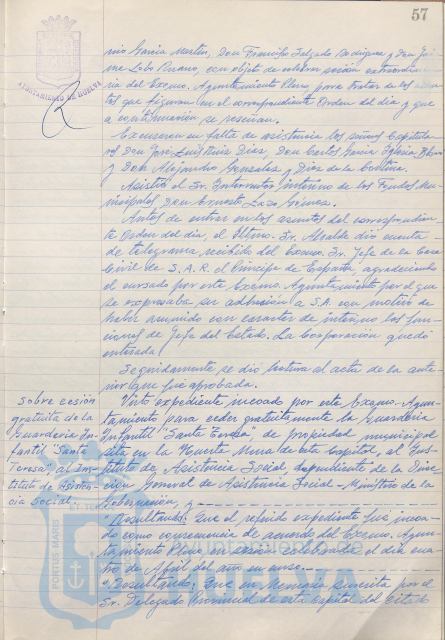 57
AYUNTAMIENTO DE HUELVA
nio García Martín, Don Francisco Salgado Rodríguez y Don Jai-
me Lobo Ruano, con objeto de celebrar sesión extraordina-
ria del Excmo. Ayuntamiento Pleno, para tratar de los asun-
tos que figuran en el correspondiente Orden del día y que
a continuación se reseñan.
Excusaron su falta de asistencia los señores Capitula-
res Don José Luis Ruiz Díaz, Don Carlos García
y Don Alejandro González y Díez de la Cortina.
Asistió el Sr. Interventor interino de los Fondos Mu-
nicipales, Don Ernesto Lazo Gómez.
Antes de entrar en los asuntos del correspondien-
te Orden del día, el Iltmo. Sr. Alcalde dio cuenta
de telegrama, recibido del Excmo. Sr. Jefe de la Casa
Civil de S.A.R. el Príncipe de España, agradeciendo
el cursado por este Excmo. Ayuntamiento por el que
se expresaba su adhesión a S.A. con motivo de
haber asumido con caracter de interino las fun-
ciones de Jefe del Estado. La Corporación quedó
enterada.
Seguidamente se dió lectura al acta de la ante-
rior que fue aprobada.
Sobre cesión
gratuita de la
Guardería In-
fantil "Santa
Teresa" al Ins-
tituto de Asisten-
cia Social.
Visto expediente incoado por este Excmo. Ayun-
tamiento para ceder gratuitamente la Guardería
Infantil "Santa Teresa", de propiedad municipal
sita en la Huerta Mena de esta Capital, al Ins-
tituto de Asistencia Social, dependiente de la Direc-
ción General de Asistencia Social - Ministerio de la
Gobernación, y
"Resultando: Que el referido expediente fué incoa-
do como consecuencia de acuerdo del Excmo. Ayun-
tamiento Pleno en sesión celebrada el día cua-
tro de Abril del año en curso.
"Resultando: Que en Memoria suscrita por el
Sr. Delegado Provincial de esta Capital del Citado
PORTUS MARIS
HUELVA